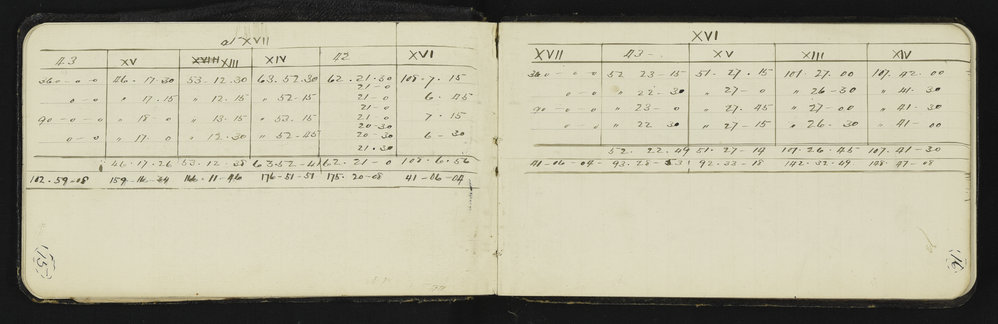 at XVII
43 XV XVIII XIII XIV 42 XVI
360-0-0 46.17.30 53.12.30 63.52.30 62.21.30 108.7.15
21-0
0-0 " 17.15 " 12.15 " 52-15 21-0 6.45
21-0
90-0-0 " 18-0 " 13.15 " 53.15 21-0 7.15
20-30
0-0 " 17-0 " 12.30 " 52.45 20-30 6-30
21.30
46-17-26 53-12-38 63-52-41 62-21-0 108-6-56
102-59-08 159-16-34 166-11-46 176-51-51 175-20-08 41-06-04
15
XVI
XVII 43 XV XIII XIV
360-0-0 52 23-15 51.27.15 107.27.00 107.42.00
0-0 " 22.30 " 27-0 " 26-30 " 41.30
90-0-0 " 23-0 " 27.45 " 27-00 " 41.30
0-0 " 22 30 " 27-15 " 26.30 " 41-00
52.22.49 51-27-14 107.26.45 107.41-30
41-06-04 93-28-53 92-33-18 142-32-49 108-47-08
16